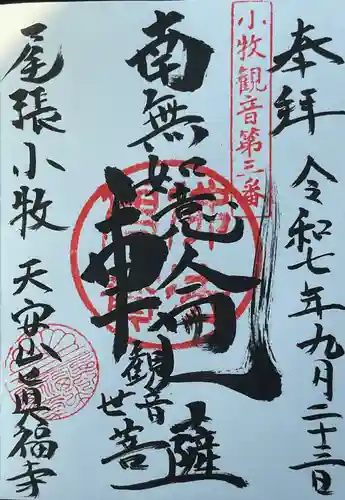 奉拝
令和七年九月二十三日
小牧観音第三番
南無如意輪
観世音菩薩
尾張小牧
天安山真福寺